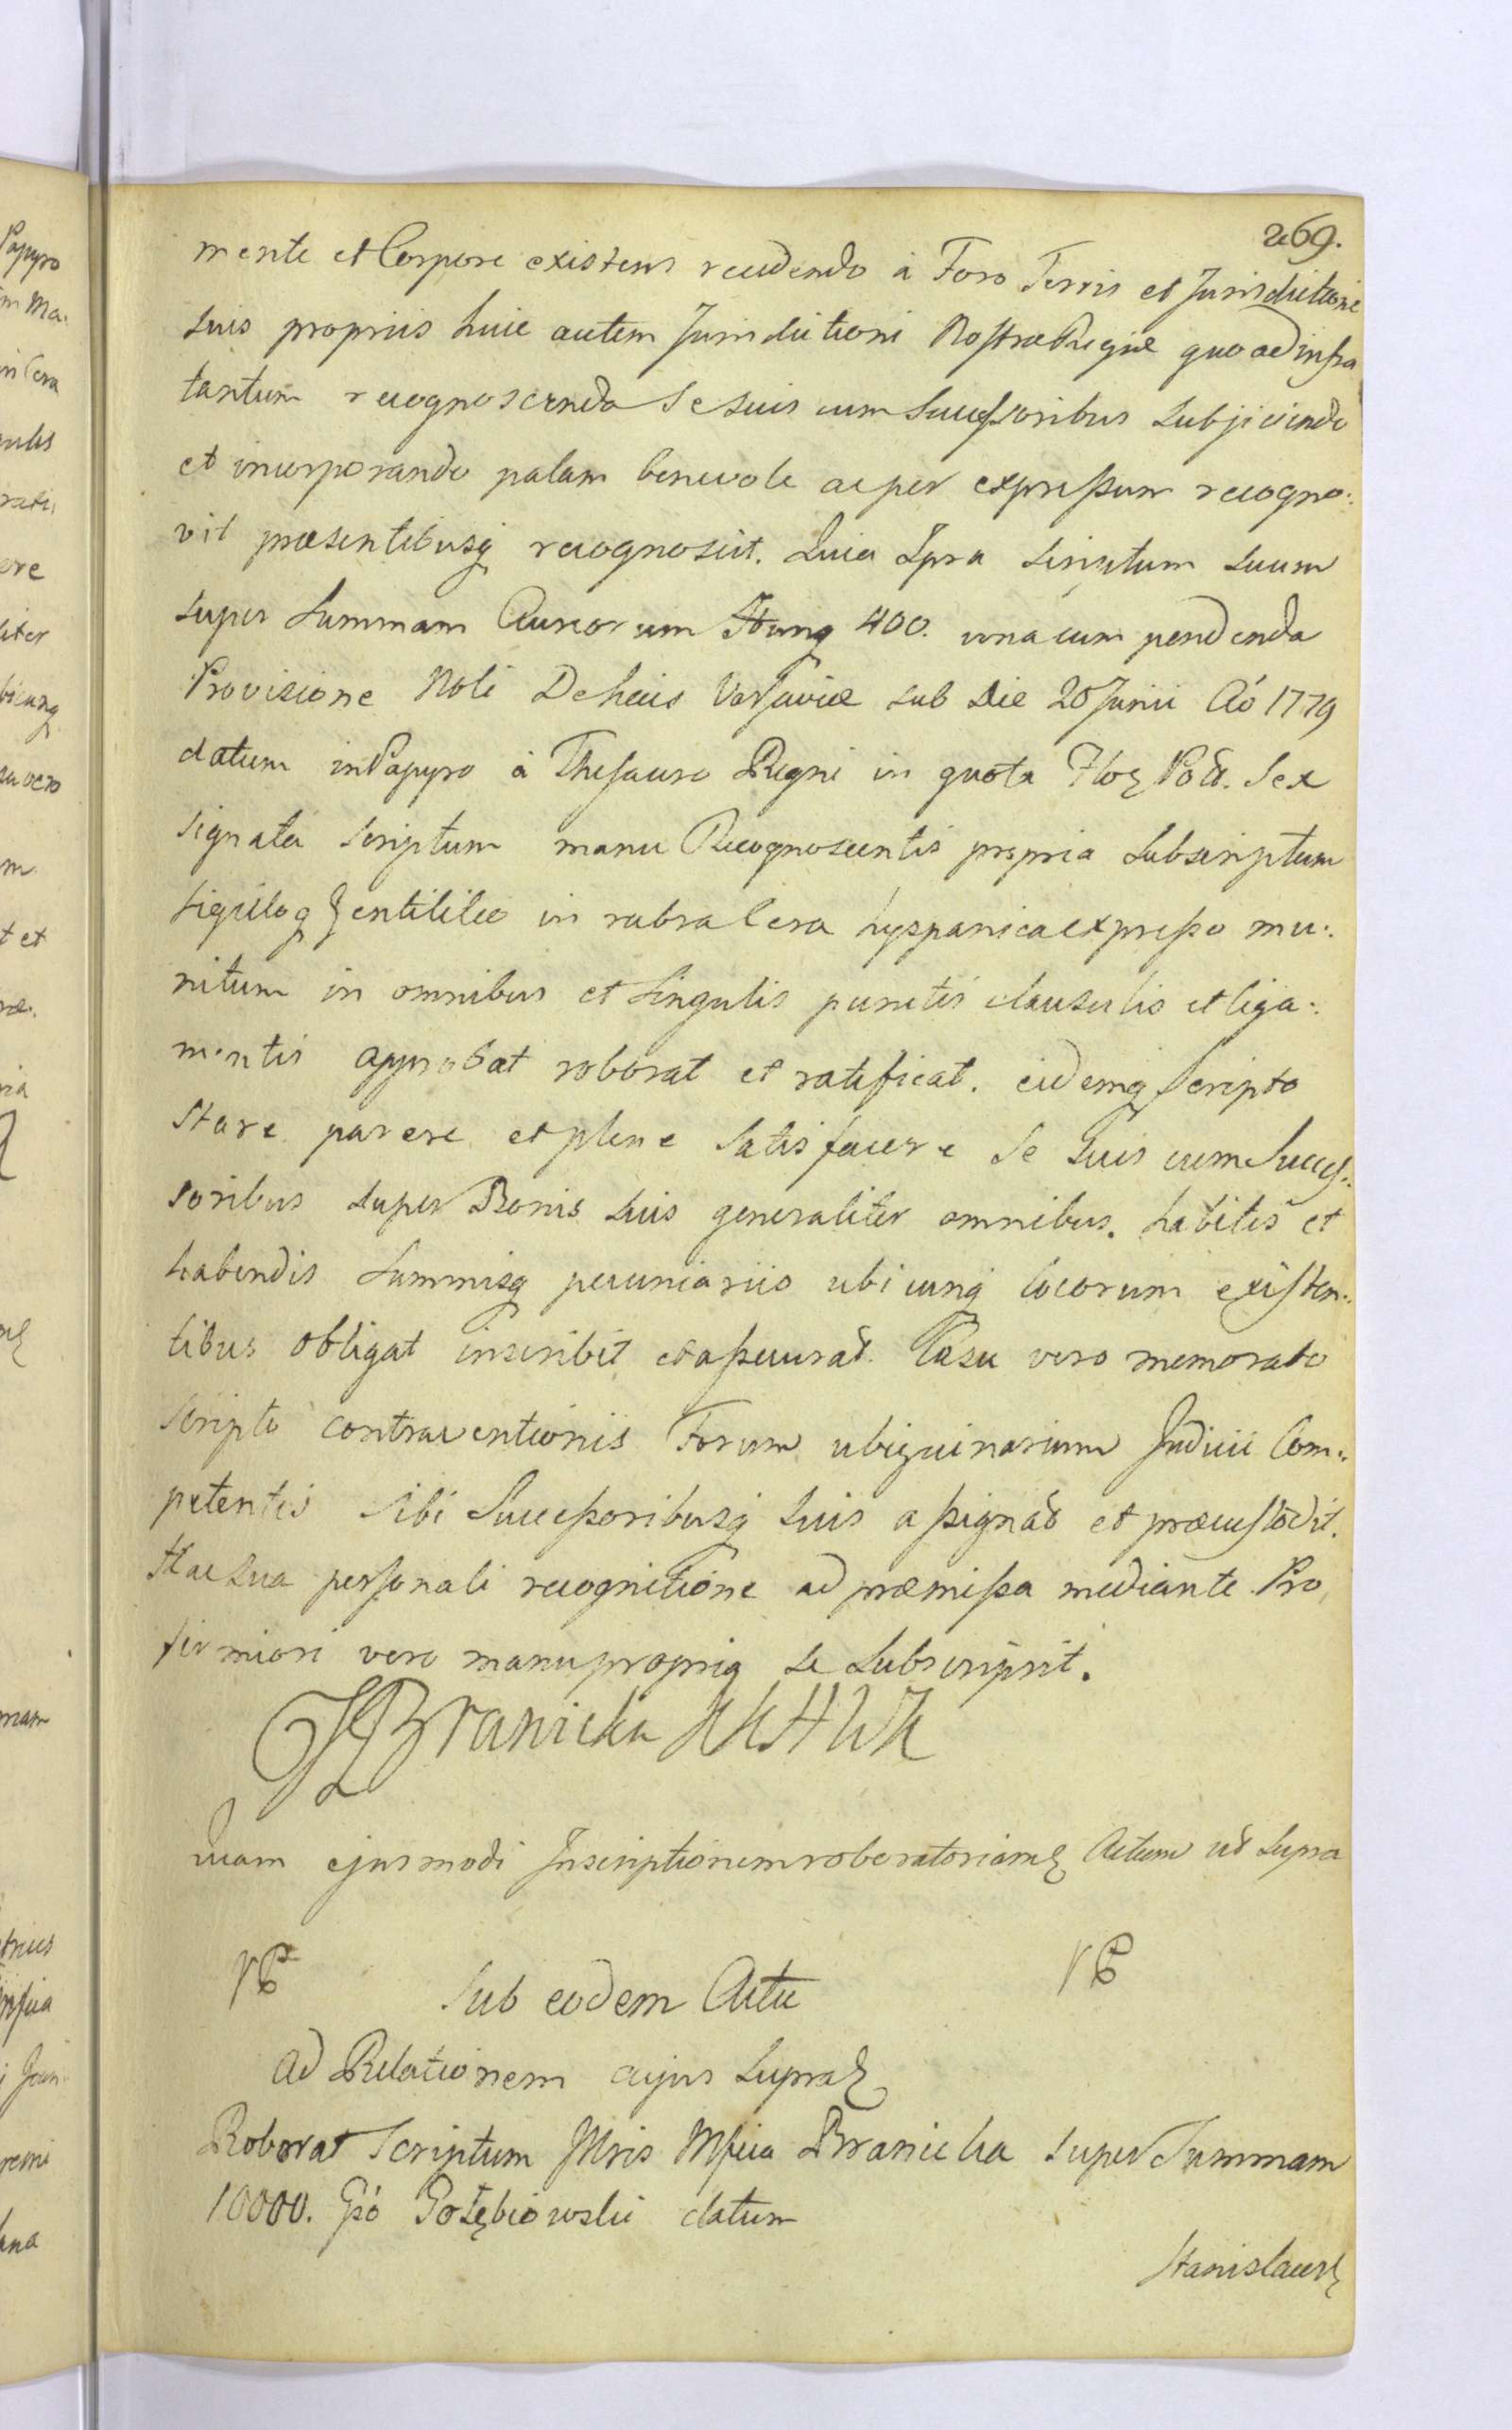 269.
mente et Corpore existens recedendo à Foro Terris et Jurisdictione
suis propriis huic autem Jurisdictioni Nostræ Regiæ quo ad infra
tantum recognoscenda Se suis cum Successoribus subjiciendo
et incorporando palam benevole ac per expressum recogno:
vit præsentibusq recognoscit. Quia Ipsa scriptum suum
super Summam Aureorum Hung 400. una cum pendenda
Provisione Nobi Dehais Varsaviæ sub Die 20 Junii Aó 1779
datum in Papyro à Thesauro Regni in quota Flor Pol. Sex
signata scriptum manu Recognoscentis propria subscriptum
sigilloq Gentilitio in rubra Cera hyspanica expresso mu:
nitum in omnibus et singulis punctis clausulis et liga:
mentis approbat roborat et ratificat. eidemq Scripto
stare parere et plene Satisfacere Se Suis cum Succes:
soribus super Bonis suis generaliter omnibus. habitis et
habendis Summisq pecuniariis ubicunq locorum existen:
tibus obligat inscribit et assecurat. Casu vero memorato
scripto contraventionis Forum ubiquinarium Judicii Com:
petentis sibi Successoribusq suis assignat et præcustodit.
Hac sua personali recognitione ad præmissa mediante. Pro
firmiori vero manu propria se subscripsit.
Branicka KKHWK
Quam ejusmodi Inscriptionem roboratoriam Actum ut supra
Sub eodem Actu
Ad Relationem cujus supra
Roborat Scriptum Illris Mfica Branicka super Summam
10000. Gso Gołębiowski datum
Stanislaus